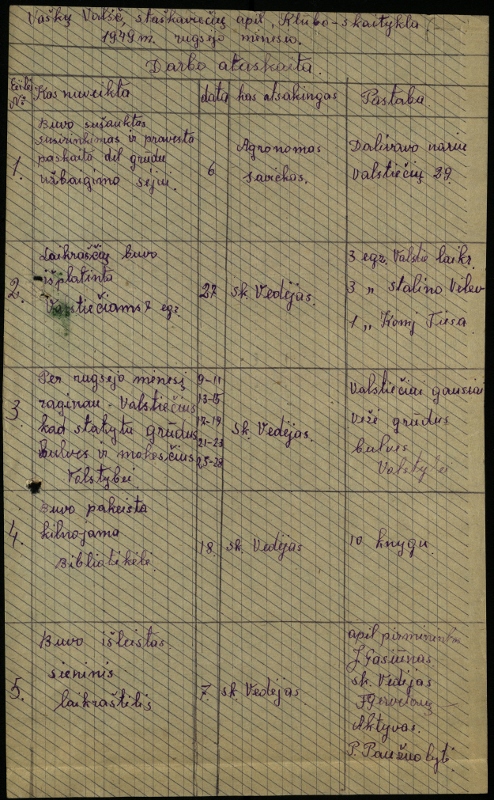 Vaškų Valsč, staškaviečių apil, Klubo-skaitykla
1949 m. rugsėjo mėnesio.
Darbo ataskaita.
Eilės Nr. Kas nuveikta data kas atsakingas Pastaba
1. Buvo sušauktas
susirinkimas ir pravesta
paskaita dėl grūdų
užbaigimo sėjų. 6 Agronomas
Dalivavo narių
Valstiečių 29.
2. Laikraščių buvo
išplatinta
Valstiečiams 7 egz. 27 sk. Vedėjas.
3 egz. Valstie laikr.
3 „ stalino
1 „ Komj Tiesa
3. Per rugsėjo mėnesį
raginau - Valstiečius
kad statytu grūdus
bulves ir mokesčius
Valstybei
9-11
13-15
17-19
21-23
25-28
sk. Vedėjas.
Valstiečiai gausiai
vežė grūdus
bulves
Valstybei
4. Buvo pakeista
kilnojama
Bibliotėkėlė. 18. sk. Vedėjas 10 knygų
5. Buvo išleistas
sieninis
laikraštilis 7. sk. Vedėjas
apil pirmininkas
J. Gasiūnas
sk. Vedėjas
Aktyvas.